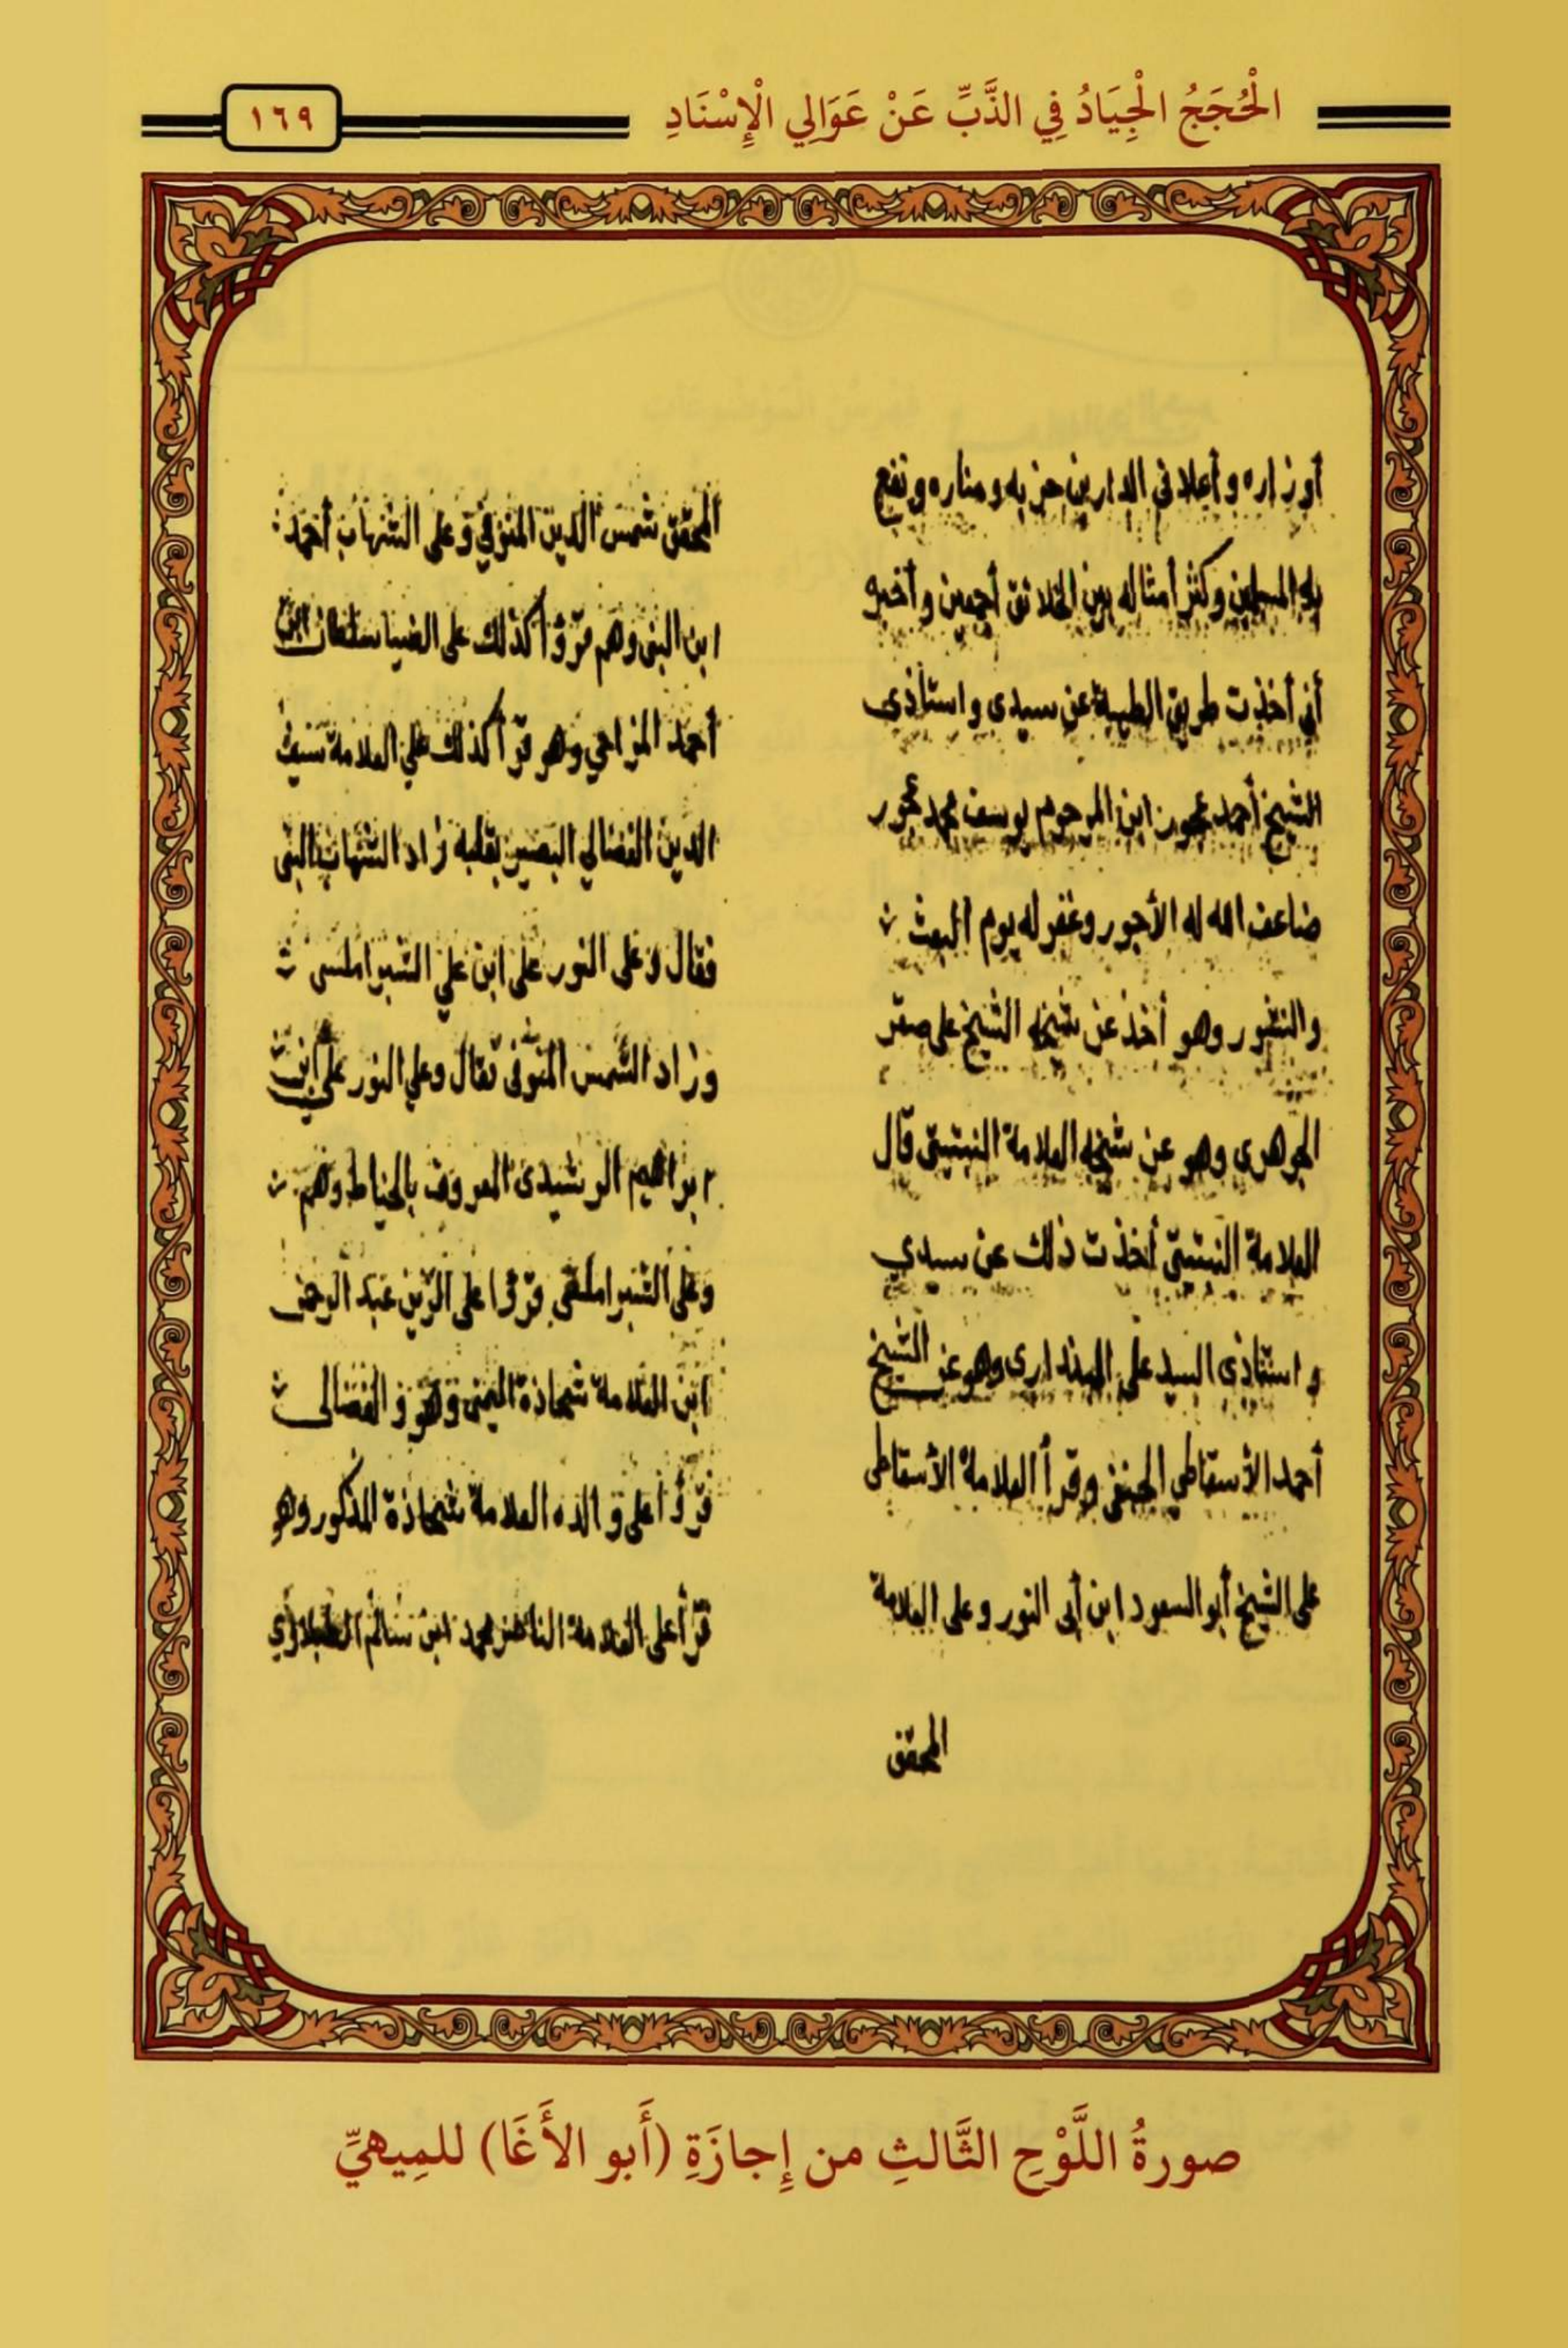 الْحُجَجُ الْجِيَادُ فِي الذَّبِّ عَنْ عَوَالِي الْإِسْنَادِ
١٦٩
أوزاره وأعلا في الدارين حزبه ومناره ونفع
به المسلمين وكثر أمثاله بين الخلائق أجمعين وأخبره
أني أخذت طريق الطيبة عن سيدى واستاذى
الشيخ أحمد عجور ابن المرحوم يوسف محمد عجور
ضاعف الله له الأجور وغفر له يوم البعث
والنشور وهو أخذ عن شيخه الشيخ على صقر
الجوهرى وهو عن شيخه العلامة النبتيتى قال
العلامة النبتيتى أخذت ذلك عن سيدي
واستاذى السيد على البدرى وهو عن الشيخ
أحمد الأسقاطي الحنفى وقرأ العلامة الأسقاطى
على الشيخ أبو السعود ابن أبى النور وعلى العلامة
المحقق
المحقق شمس الدين المنوفي وعلى الشهاب أحمد
ابن البنى وهم قرؤا كذلك على الضيا سلطان ابن
أحمد المزاحي وهو قرأ كذلك علي العلامة سيف
الدين الفضالي البصير بقلبه زاد الشهاب البنى
فقال وعلى النور على ابن علي الشبراملسى
وزاد الشمس المنوفى فقال وعلي النور علي ابن
ابراهيم الرشيدى المعروف بالخياط وهم
وعلى الشبراملسى قرؤا على الزين عبد الرحمن
ابن العلامة شحاذة اليمنى وهو و الفضالى
قرؤا على والده العلامة شحاذة المذكور وهو
قرأ على العلامة الناصر محمد ابن سالم الطبلاوي
صورةُ اللَّوْحِ الثَّالثِ من إِجازَةِ (أَبو الأَغَا) للمِيهيِّ